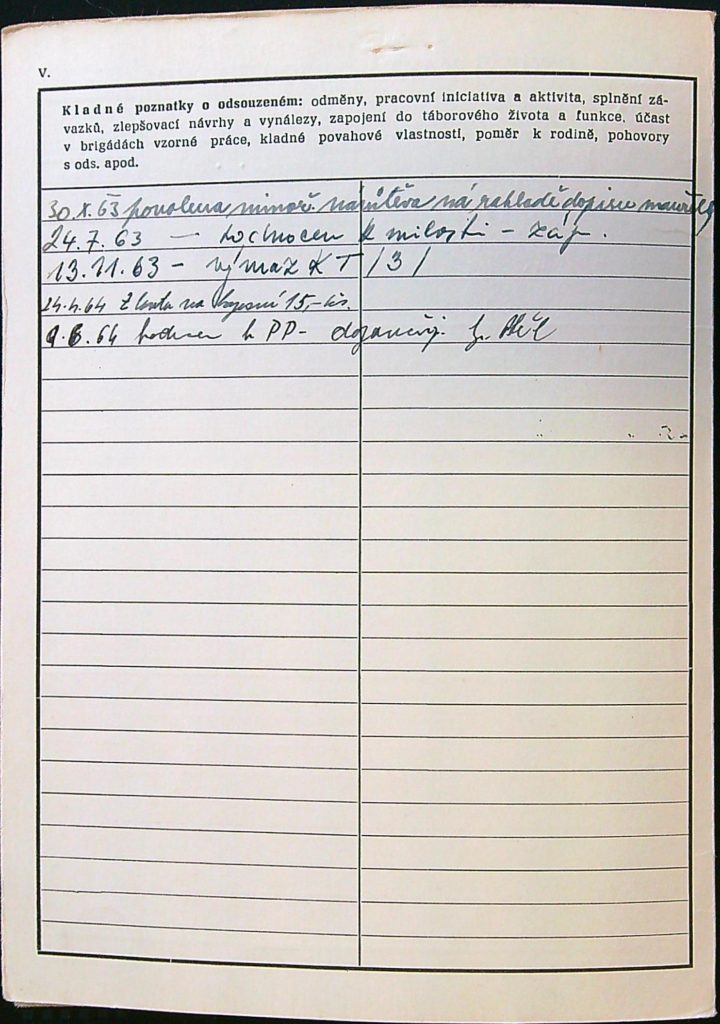 V.
Kladné poznatky o odsouzeném: odměny, pracovní iniciativa a aktivita, splnění zá-
vazků, zlepšovací návrhy a vynálezy, zapojení do táborového života a funkce, účast
v brigádách vzorné práce, kladné povahové vlastnosti, poměr k rodině, pohovory
s ods. apod.
30.X.63 povolena mimoř. návštěva na základě dopisu manželky
24.7.63 — hodnocen k milosti - záp.
13.11.63 - výmaz KT /3/
24.4.64 Z konta na kapesné 15,- kčs.
9.6.64 hodnocen k PP-